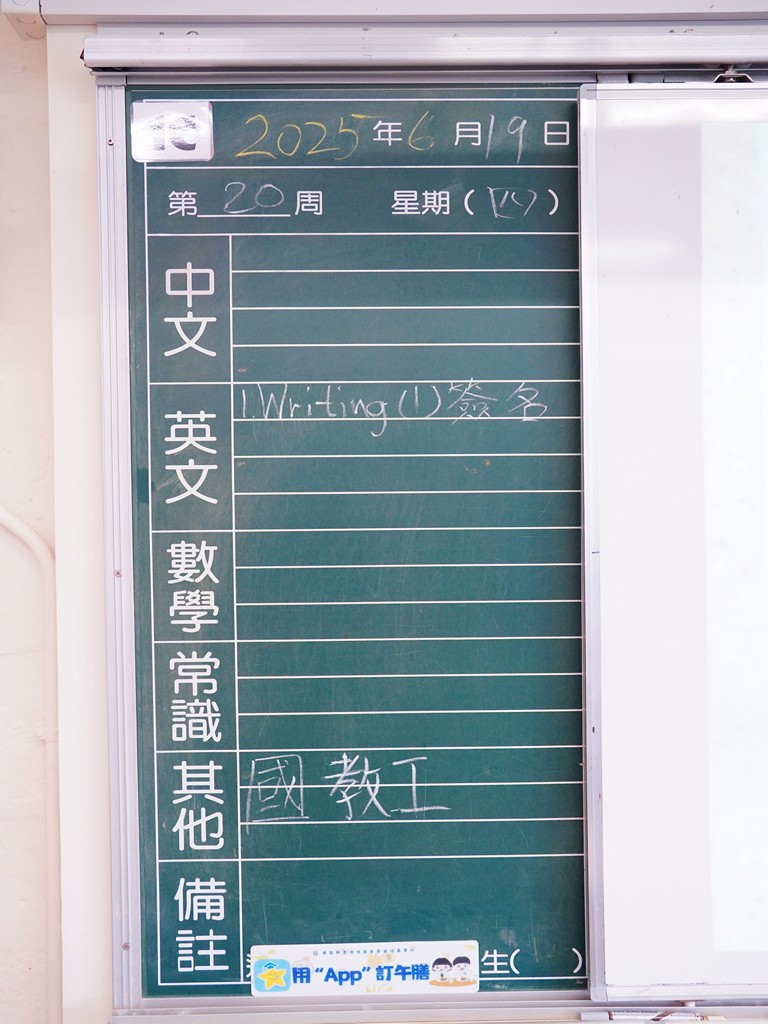 1C
2025年6月19日
第20周 星期(四)
中文
英文
1.Writing(1)簽名
數學
常識
其他
國教工
備註
用“App”訂午膳
生( )